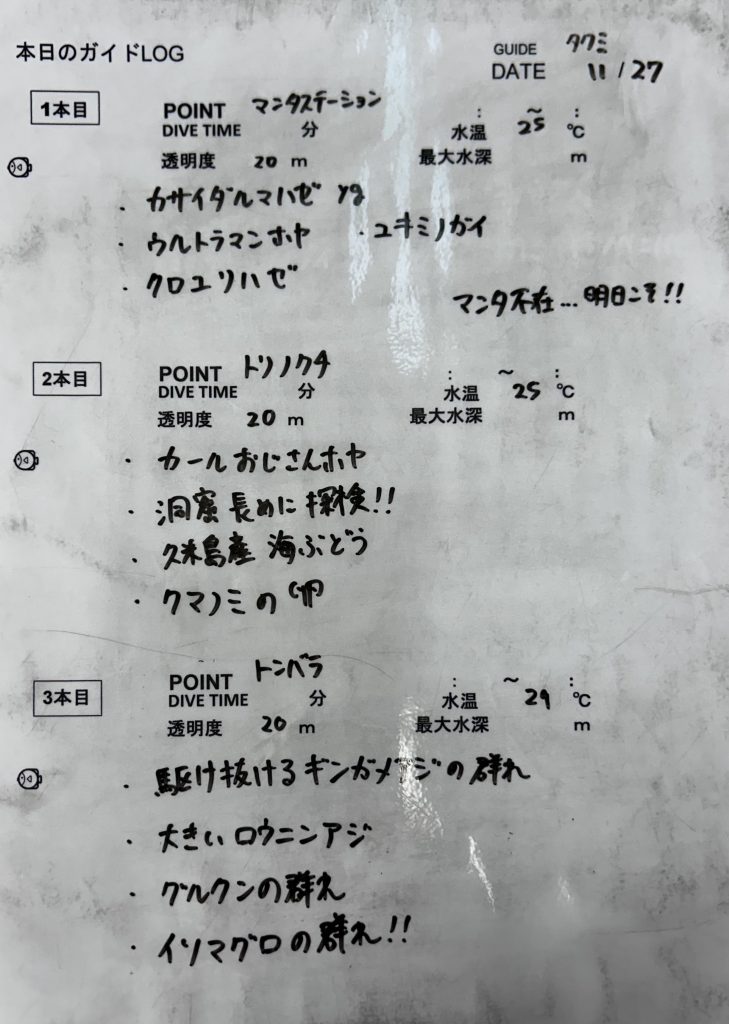 本日のガイドLOG
GUIDE タクミ
DATE 11/27
1本目
POINT マンタステーション : ～ :
DIVE TIME 分 水温 25 ℃
透明度 20 m 最大水深 m
・カサイダルマハゼ yg
・ウルトラマンホヤ ・ユキミノガイ
・クロユリハゼ
マンタ不在…明日こそ!!
2本目
POINT トリノクチ : ～ :
DIVE TIME 分 水温 25 ℃
透明度 20 m 最大水深 m
・カールおじさんホヤ
・洞窟長めに探検!!
・久米島産 海ぶどう
・クマノミの卵
3本目
POINT トンバラ : ～ :
DIVE TIME 分 水温 24 ℃
透明度 20 m 最大水深 m
・駆け抜けるギンガメアジの群れ
・大きいロウニンアジ
・グルクンの群れ
・イソマグロの群れ!!